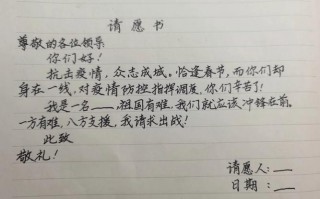 请愿书
尊敬的各位领导
你们好!
抗击疫情,众志成城。恰逢春节,而你们却
身在一线,对疫情防控指挥调度,你们辛苦了!
我是一名__,祖国有难,我们就应该冲锋在前。
一方有难,八方支援,我请求出战!
此致
敬礼!
请愿人:__
日期:__